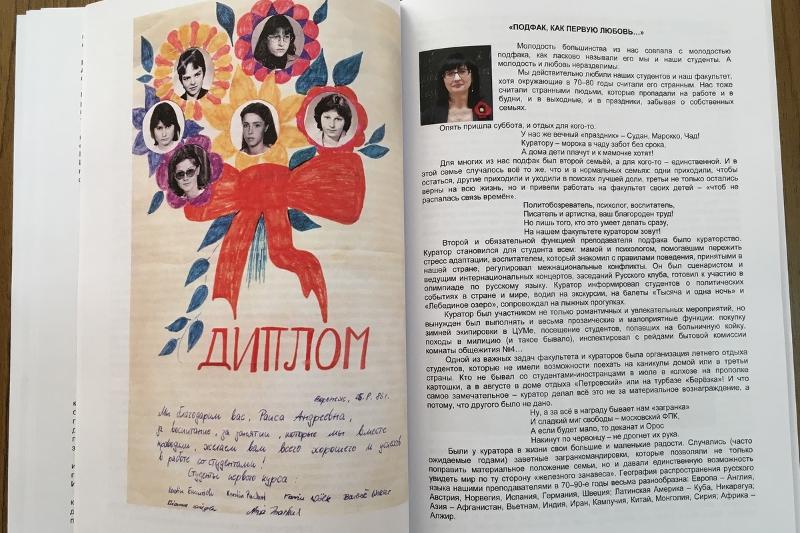 ДИПЛОМ
Мы благодарим вас, Раиса Андреевна,
за воспитание, за занятия, которые мы вместе
проводили, желаем вам всего хорошего и успехов
в работе со студентами!
Студенты первого курса:
«ПОДФАК, КАК ПЕРВУЮ ЛЮБОВЬ…»
Молодость большинства из нас совпала с молодостью
подфака, как ласково называли его мы и наши студенты. А
молодость и любовь неразделимы:
Мы действительно любили наших студентов и наш факультет,
хотя окружающие в 70–80 годы считали его странным. Нас тоже
считали странными людьми, которые пропадали на работе и в
будни, и в выходные, и в праздники, забывая о собственных
семьях.
Опять пришла суббота, и отдых для кого-то.
У нас же вечный «праздник» – Судан, Марокко, Чад!
Куратору – морока в чаду забот без срока,
А дома дети плачут и к мамочке хотят!
Для многих из нас подфак был второй семьёй, а для кого-то – единственной. И в
этой семье случалось всё то же, что и в нормальных семьях: одни приходили, чтобы
остаться, другие приходили и уходили в поисках лучшей доли, третьи не только остались
верны на всю жизнь, но и привели работать на факультет своих детей – «чтоб не
распалась связь времён».
Политобозреватель, психолог, воспитатель,
Писатель и артистка, ваш благороден труд!
Но лишь того, кто это умеет делать сразу,
На нашем факультете куратором зовут!
Второй и обязательной функцией преподавателя подфака было кураторство.
Куратор становился для студента всем: мамой и психологом, помогавшим пережить
стресс адаптации, воспитателем, который знакомил с правилами поведения, принятыми в
нашей стране, регулировал межнациональные конфликты. Он был сценаристом и
ведущим интернациональных концертов, заседаний Русского клуба, готовил к участию в
олимпиаде по русскому языку. Куратор информировал студентов о политических
событиях в стране и мире, водил на экскурсии, на балеты «Тысяча и одна ночь» и
«Лебединое озеро», сопровождал на лыжных прогулках.
Куратор был участником не только романтичных и увлекательных мероприятий, но
вынужден был выполнять и весьма прозаические и малоприятные функции: покупку
зимней экипировки в ЦУМе, посещение студентов, попавших на больничную койку,
походы в милицию (и такое бывало), инспектировал с рейдами бытовой комиссии
комнаты общежития №4…
Одной из важных задач факультета и кураторов была организация летнего отдыха
студентов, которые не имели возможности поехать на каникулы домой или в третьи
страны. Кто не бывал со студентами-иностранцами в июле в колхозе на прополке
картошки, а в августе в доме отдыха «Петровский» или на турбазе «Берёзка»! И что
самое замечательное – куратор делал всё это не за материальное вознаграждение, а
потому, что другого было не дано.
Ну, а за всё в награду бывает нам «загранка»
И сладкий миг свободы – московский ФПК,
А если будет мало, то деканат и Орос
Накинут по червонцу – не дрогнет их рука.
Были у куратора в жизни свои большие и маленькие радости. Случались (часто
ожидаемые годами) заветные загранкомандировки, которые позволяли не только
поправить материальное положение семьи, но и давали единственную возможность
увидеть мир по ту сторону «железного занавеса». География распространения русского
языка нашими преподавателями в 70–90-е годы весьма разнообразна: Европа – Англия,
Австрия, Норвегия, Испания, Германия, Швеция; Латинская Америка – Куба, Никарагуа;
Азия – Афганистан, Вьетнам, Индия, Иран, Кампучия, Китай, Монголия, Сирия; Африка –
Алжир.